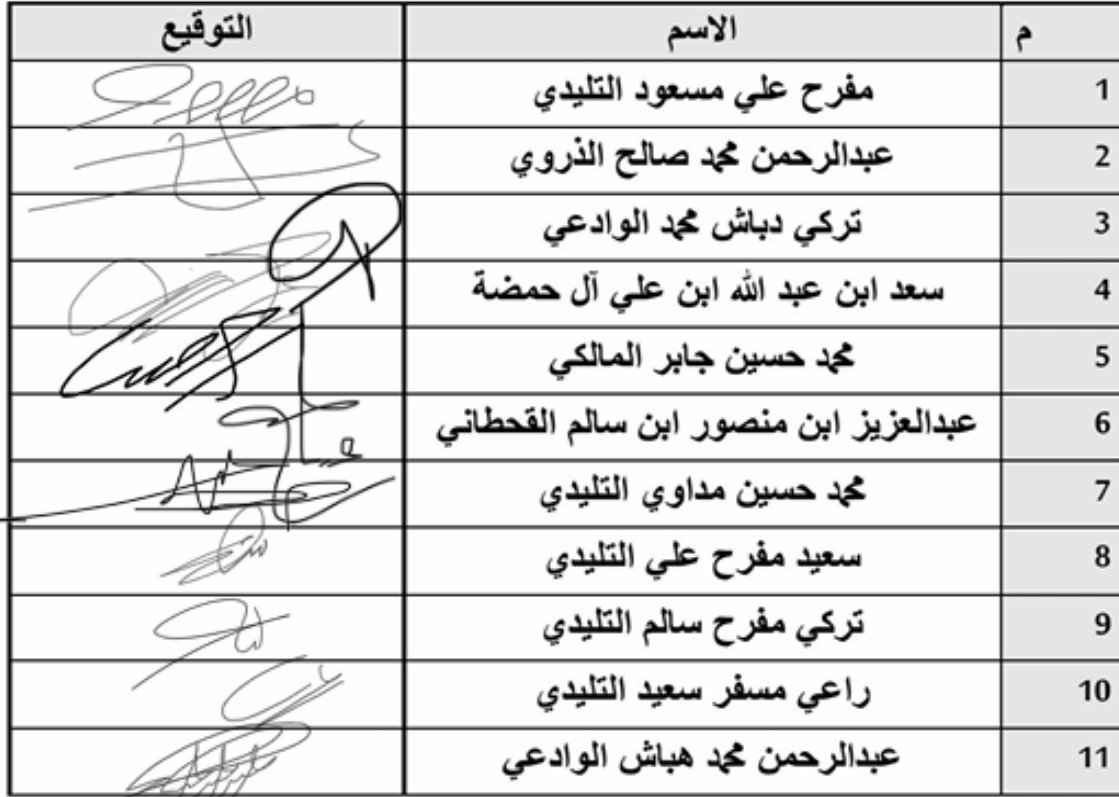 م الاسم التوقيع
1 مفرح علي مسعود التليدي
2 عبدالرحمن محمد صالح الذروي
3 تركي دباش محمد الوادعي
4 سعد ابن عبد الله ابن علي آل حمضة
5 محمد حسين جابر المالكي
6 عبدالعزيز ابن منصور ابن سالم القحطاني
7 محمد حسين مداوي التليدي
8 سعيد مفرح علي التليدي
9 تركي مفرح سالم التليدي
10 راعي مسفر سعيد التليدي
11 عبدالرحمن محمد هباش الوادعي